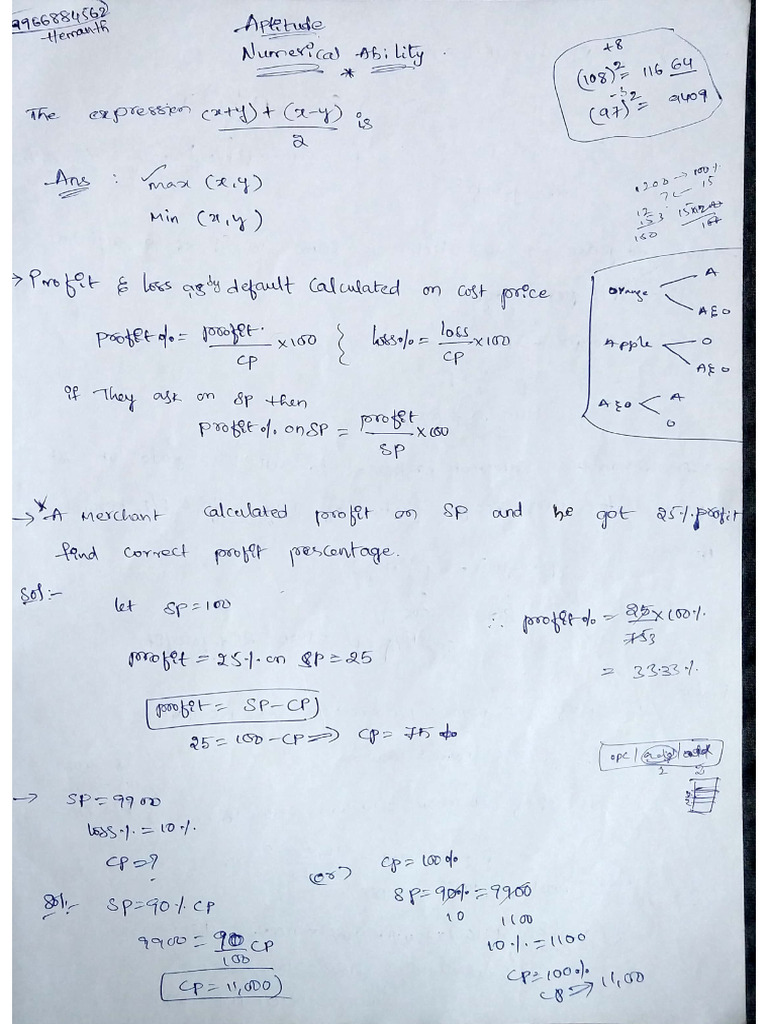 9966884562
Hemanth
Aptitude
Numerical Ability
+8
(108)² = 11664
-3
(97)² = 9409
The expression (x+y) + (x-y) / 2 is
Ans : ✓max (x,y)
Min (x,y)
1200 → 100%
15
→ Profit & loss by default calculated on cost price
profit% = profit/CP ×100 } loss% = loss/CP ×100
if They ask on SP then
profit% on SP = profit/SP ×100
Orange < A
A&O
Apple < O
A&O
A&O < A
O
→ * A Merchant calculated profit on SP and he got 25% profit
find correct profit pescentage.
Sol:-
let SP=100
profit = 25% on SP = 25
profit = SP-CP
25 = 100-CP ⇒ CP = 75
∴ profit% = 25/75 3 ×100%
= 33.33%
opc
1 2
→ SP=9900
loss% = 10%
CP=?
Sol:- SP=90% CP
9900 = 90/100 CP
CP = 11,000
(or) CP=100%
SP=90% = 9900
10 1100
10% = 1100
CP=100%
CP ⇒ 11,00